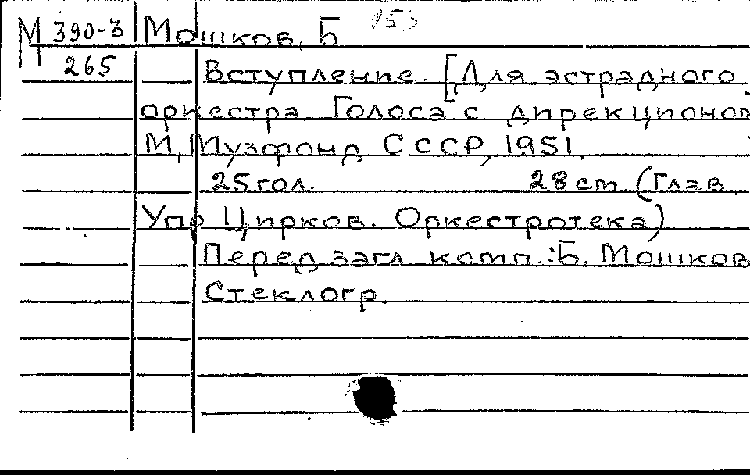 М 390-3 Мошков, Б 153
265 Вступление. [Для эстрадного
оркестра Голоса с дирекционом
М, Музфонд СССР, 1951.
25 гол. 28 cm. (Глав
Упр Цирков. Оркестротека)
Перед загл комп: Б. Мошков
Стеклогр.